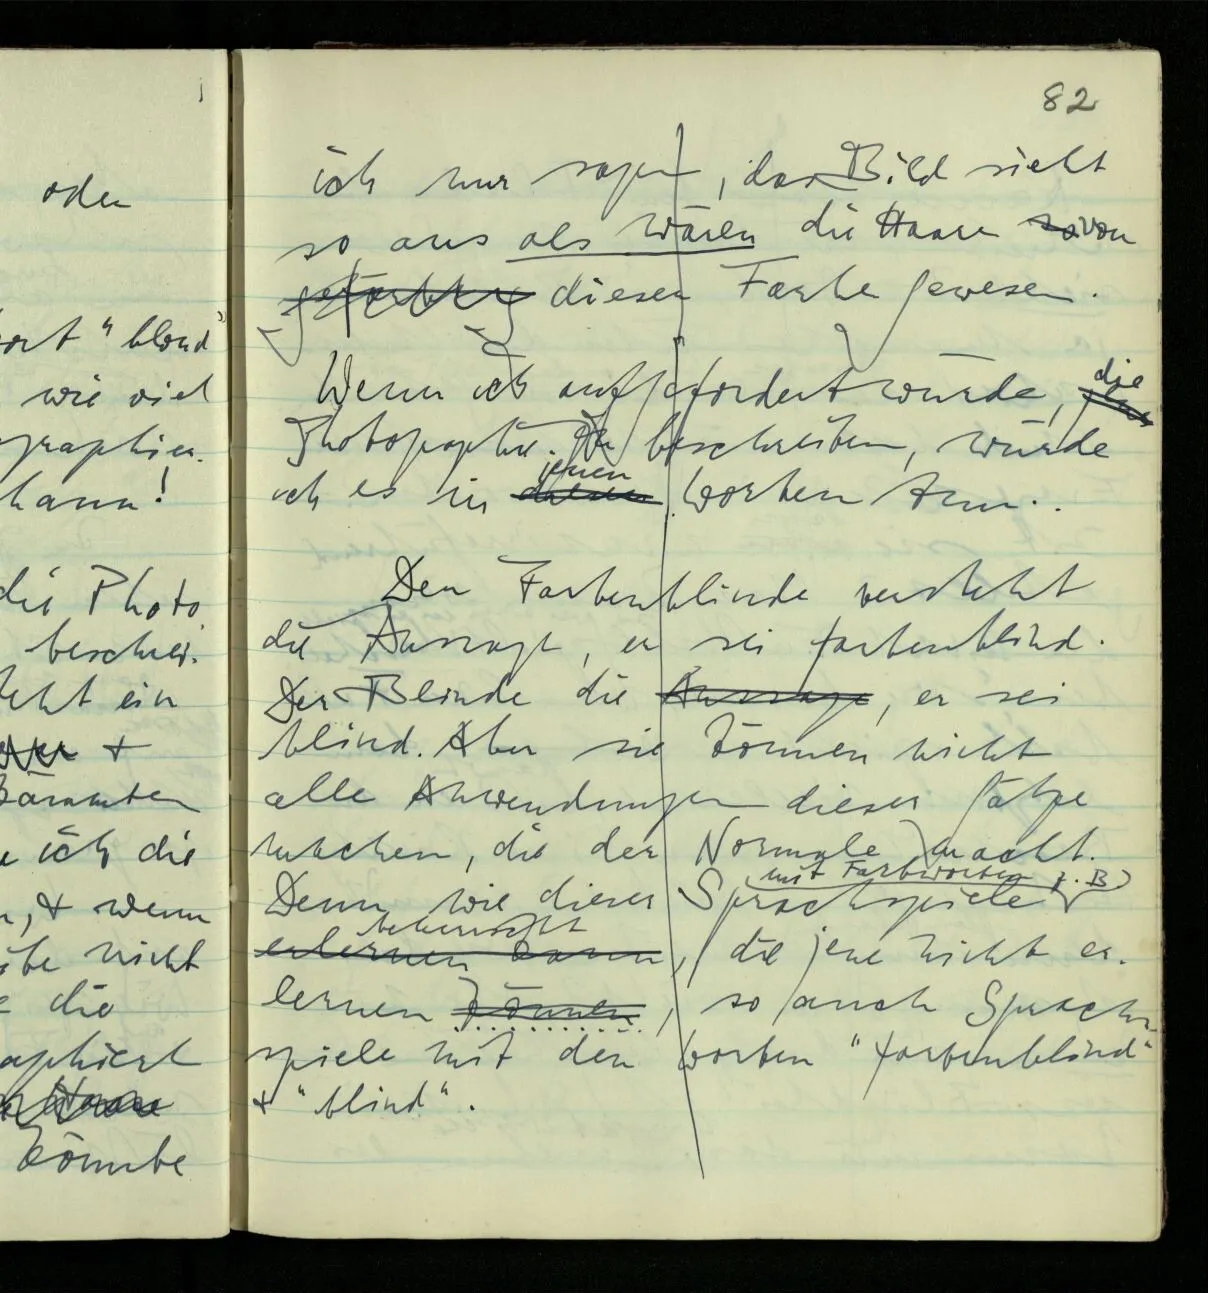 oder
ort "blond"
wie viel
graphier-
kann!
die Photo
beschrei-
teht ein
+
ich die
, + wenn
be nicht
die
aphiert
Haare
könnte
82
ich nur sagen, das Bild sieht
so aus als wären die Haare so von
gefärbt dieser Farbe gewesen.
Wenn ich aufgefordert würde, die
Photographie zu beschreiben, würde
jenen
ich es in Worten tun.
Der Farbenblinde versteht
die Aussage, er sei farbenblind.
Der Blinde die Aussage, er sei
blind. Aber sie können nicht
alle Anwendungen dieser Sätze
machen, die der Normale macht.
mit Farbworten z.B.
Denn wie dieser Sprachspiele
beherrscht
erlernen kann, die jene nicht er-
lernen können, so auch Sprach-
spiele mit den Worten "farbenblind"
+ "blind".